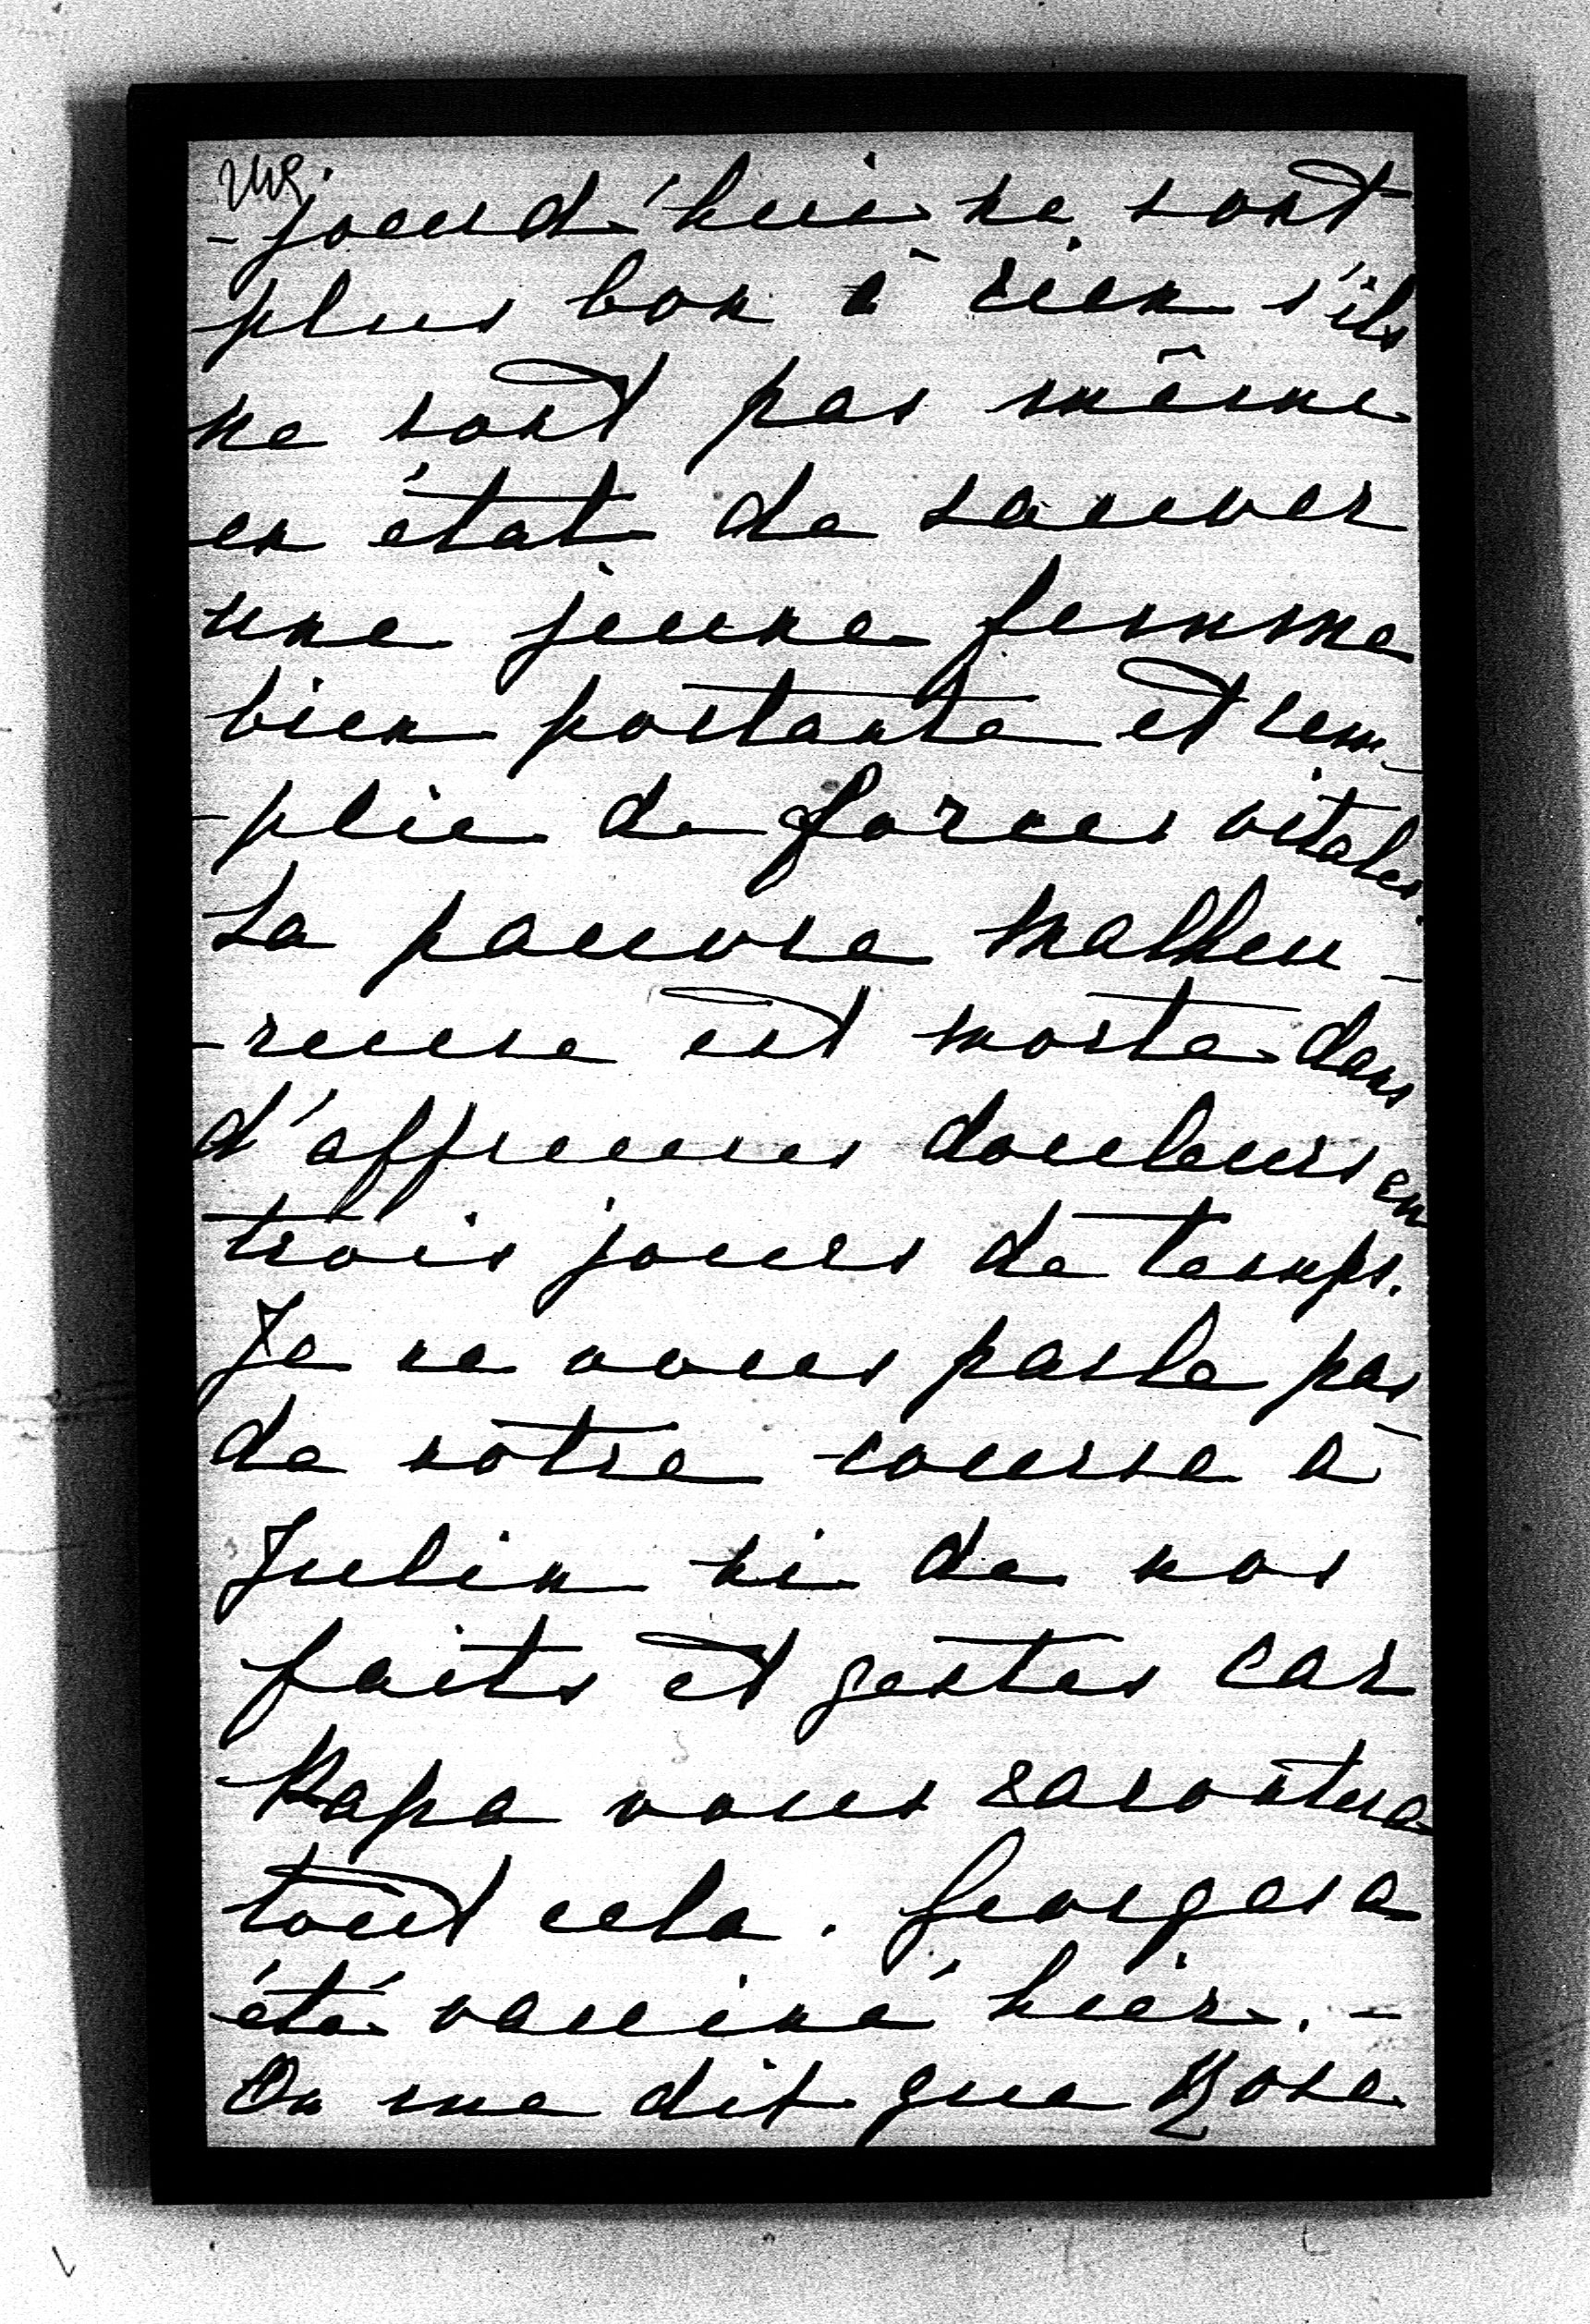 -jourd'hui ne sont
plus bon à rien s'ils
ne sont pas même
en état de sauver
une jeune femme
bien portante et rem-
-plie de forces vitales.
La pauvre malheu-
-reuse est morte dans
d'affreuses douleurs en
trois jours de temps.
Je ne vous parle pas
de notre course à
Julin ni de nos
faits et gestes car
Papa vous racontera
tout cela. Georges a
été vacciné hier. -
On me dit que Rose